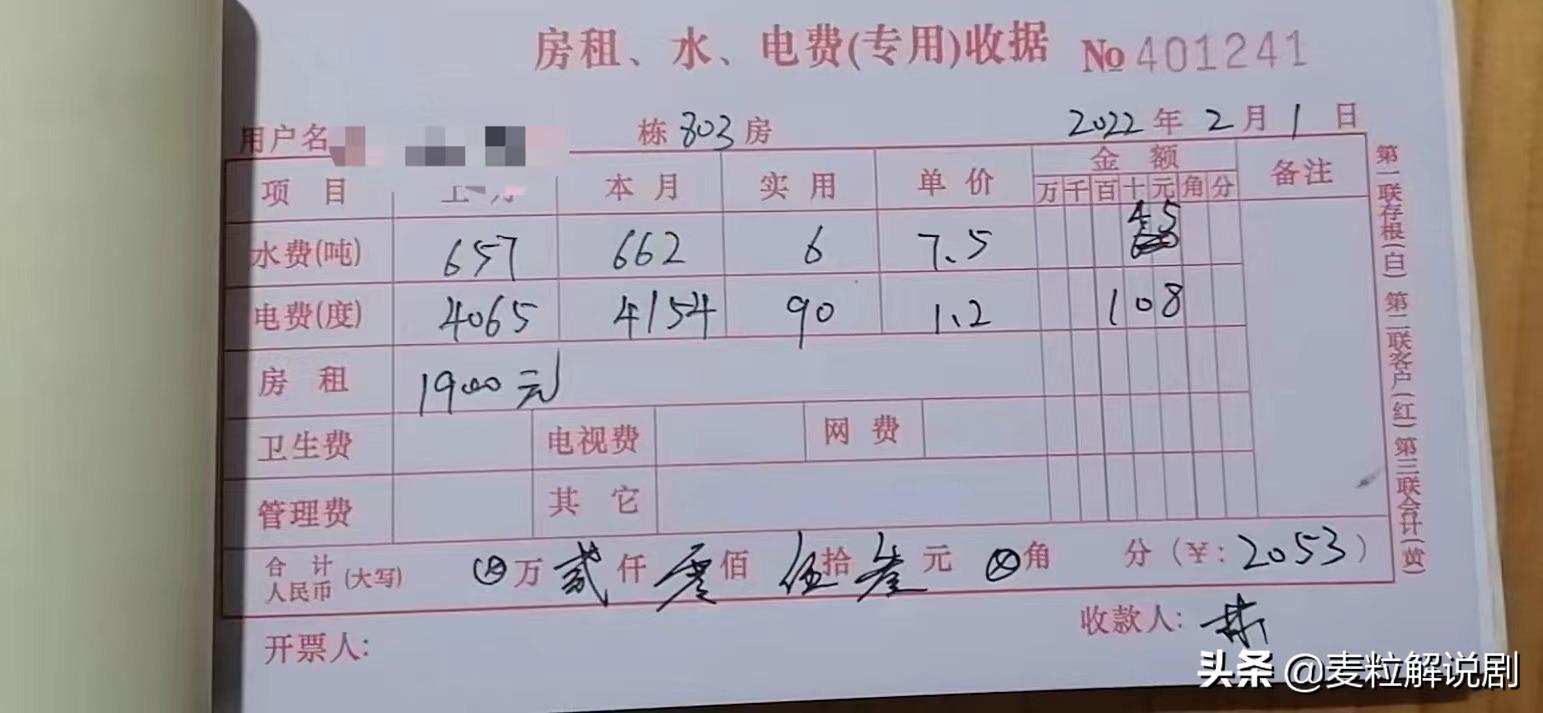 房租、水、电费(专用)收据 No 401241
用户名 栋 803 房 2022 年 2 月 1 日
项目 本月 实用 单价 金额 备注
万 千 百 十 元 角 分
水费(吨) 657 662 6 7.5 45
电费(度) 4065 4154 90 1.2 108
房租 1900元
卫生费 电视费 网费
管理费 其它
合计人民币(大写) 万 贰 仟 零 佰 伍 拾 叁 元 角 分 (¥: 2053)
开票人: 收款人:
第一联存根(白) 第二联客户(红) 第三联会计(黄)
头条 @麦粒解说剧